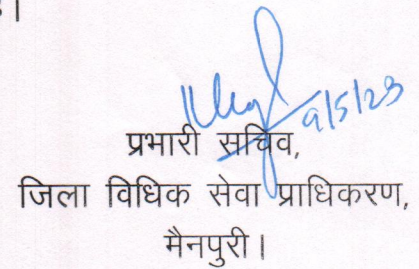 है।
9/5/23
प्रभारी सचिव,
जिला विधिक सेवा प्राधिकरण,
मैनपुरी।